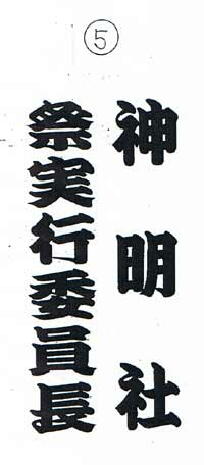 ⑤
神明社
祭実行委員長